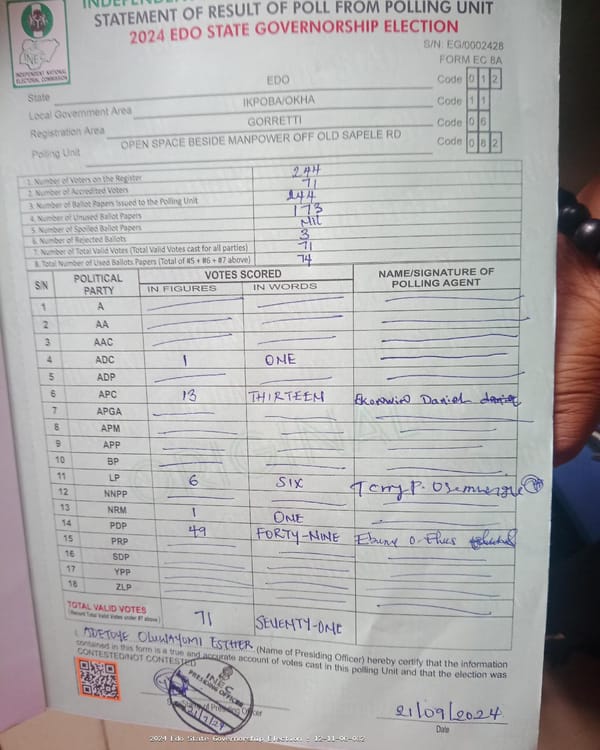 INDEPENDENT
STATEMENT OF RESULT OF POLL FROM POLLING UNIT
2024 EDO STATE GOVERNORSHIP ELECTION
INEC
INDEPENDENT NATIONAL ELECTORAL COMMISSION
S/N: EG/0002428
FORM EC 8A
State EDO Code 0 1 2
Local Government Area IKPOBA/OKHA Code 1 1
Registration Area GORRETTI Code 0 6
Polling Unit OPEN SPACE BESIDE MANPOWER OFF OLD SAPELE RD Code 0 8 2
1. Number of Voters on the Register 244
2. Number of Accredited Voters 71
3. Number of Ballot Papers Issued to the Polling Unit 244
4. Number of Unused Ballot Papers 173
5. Number of Spoiled Ballot Papers Nil
6. Number of Rejected Ballots 3
7. Number of Total Valid Votes (Total Valid Votes cast for all parties) 71
8. Total Number of Used Ballots Papers (Total of #5 + #6 + #7 above) 74
S/N POLITICAL PARTY VOTES SCORED NAME/SIGNATURE OF POLLING AGENT
IN FIGURES IN WORDS
1 A
2 AA
3 AAC
4 ADC 1 ONE
5 ADP
6 APC 13 THIRTEEN Daniel
7 APGA
8 APM
9 APP
10 BP
11 LP 6 SIX Terry P.
12 NNPP
13 NRM 1 ONE
14 PDP 49 FORTY-NINE
15 PRP
16 SDP
17 YPP
18 ZLP
TOTAL VALID VOTES 71 SEVENTY-ONE
(Record Total Valid Votes under #7 above)
I, ADETOYE OLUWAYOMI ESTHER (Name of Presiding Officer) hereby certify that the information
contained in this form is a true and accurate account of votes cast in this polling Unit and that the election was
CONTESTED/NOT CONTESTED
INEC
PRESIDING OFFICER
Signature of Presiding Officer
21/09/2024
Date
2024 Edo State Governorship Election - 12-11-06-082